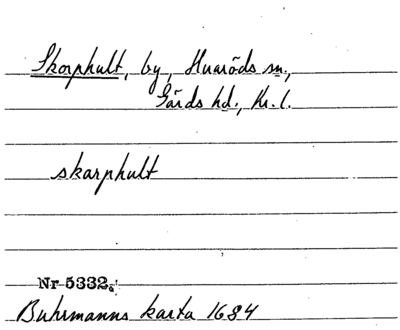 Skorphult, by, Huaröds sn.,
Gärds hd., Kr. l.
skarphult
Nr 5332.
Buhrmanns karta 1684